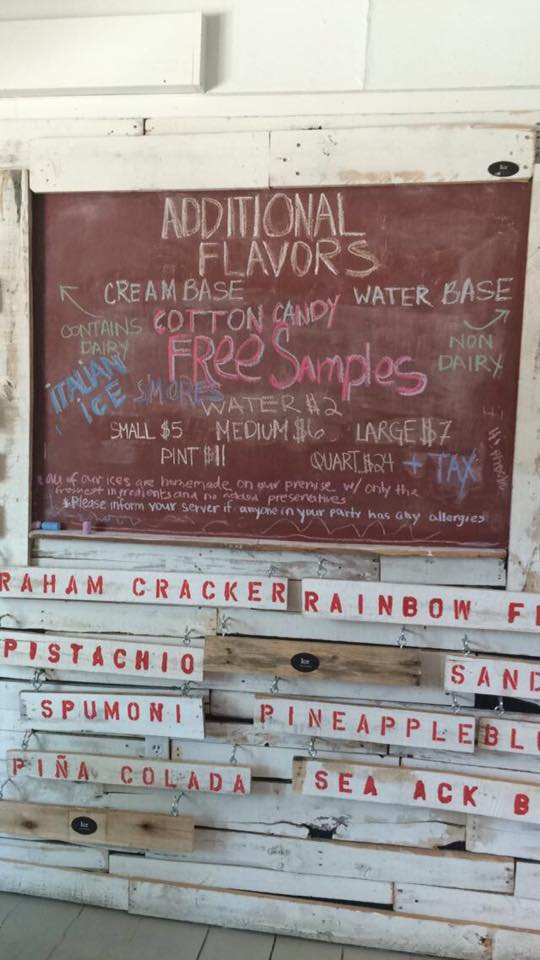 ADDITIONAL
FLAVORS
CREAM BASE
WATER BASE
CONTAINS
DAIRY
COTTON CANDY
NON
DAIRY
FREE Samples
ITALIAN
ICE
S'MORES
WATER $2
SMALL $5 MEDIUM $6 LARGE $7
PINT $11 QUART $24 + TAX
All of our ices are homemade on our premise w/ only the
freshest ingredients and no added presertatives
*Please inform your server if anyone in your party has any allergies
RAHAM CRACKER
RAINBOW F
PISTACHIO
Ice
SAND
SPUMONI
PINEAPPLE
BLU
PIÑA COLADA
SEA ACK B
Ice